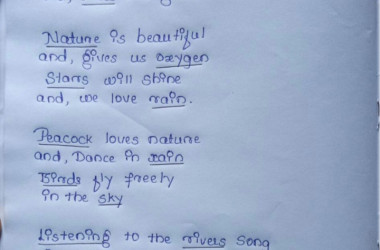 Nature is beautiful
and, gives us oxygen
Stars will shine
and, we love rain.
Peacock loves nature
and, Dance in rain
Birds fly freely
in the sky
Listening to the rivers song